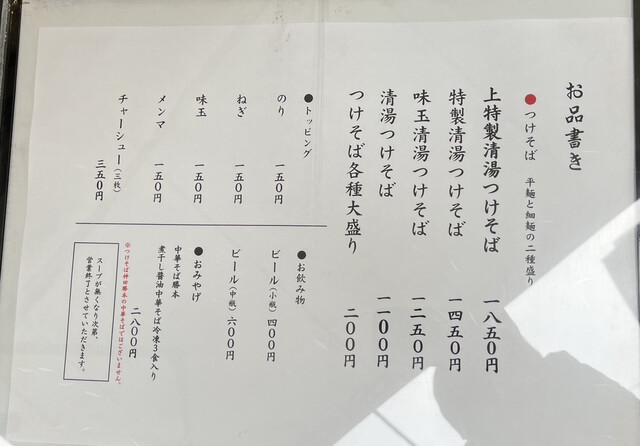 お品書き
●つけそば 平麺と細麺の二種盛り
上特製清湯つけそば 一八五〇円
特製清湯つけそば 一四五〇円
味玉清湯つけそば 一二五〇円
清湯つけそば 一一〇〇円
つけそば各種大盛り 二〇〇円
●トッピング
のり 一五〇円
ねぎ 一五〇円
味玉 一五〇円
メンマ 一五〇円
チャーシュー(三枚) 三五〇円
●お飲み物
ビール(小瓶) 四〇〇円
ビール(中瓶) 六〇〇円
●おみやげ
中華そば勝本
煮干し醤油中華そば冷凍3食入り
二八〇〇円
※つけそば神田勝本の中華そばではございません。
スープが無くなり次第、
営業終了とさせていただきます。